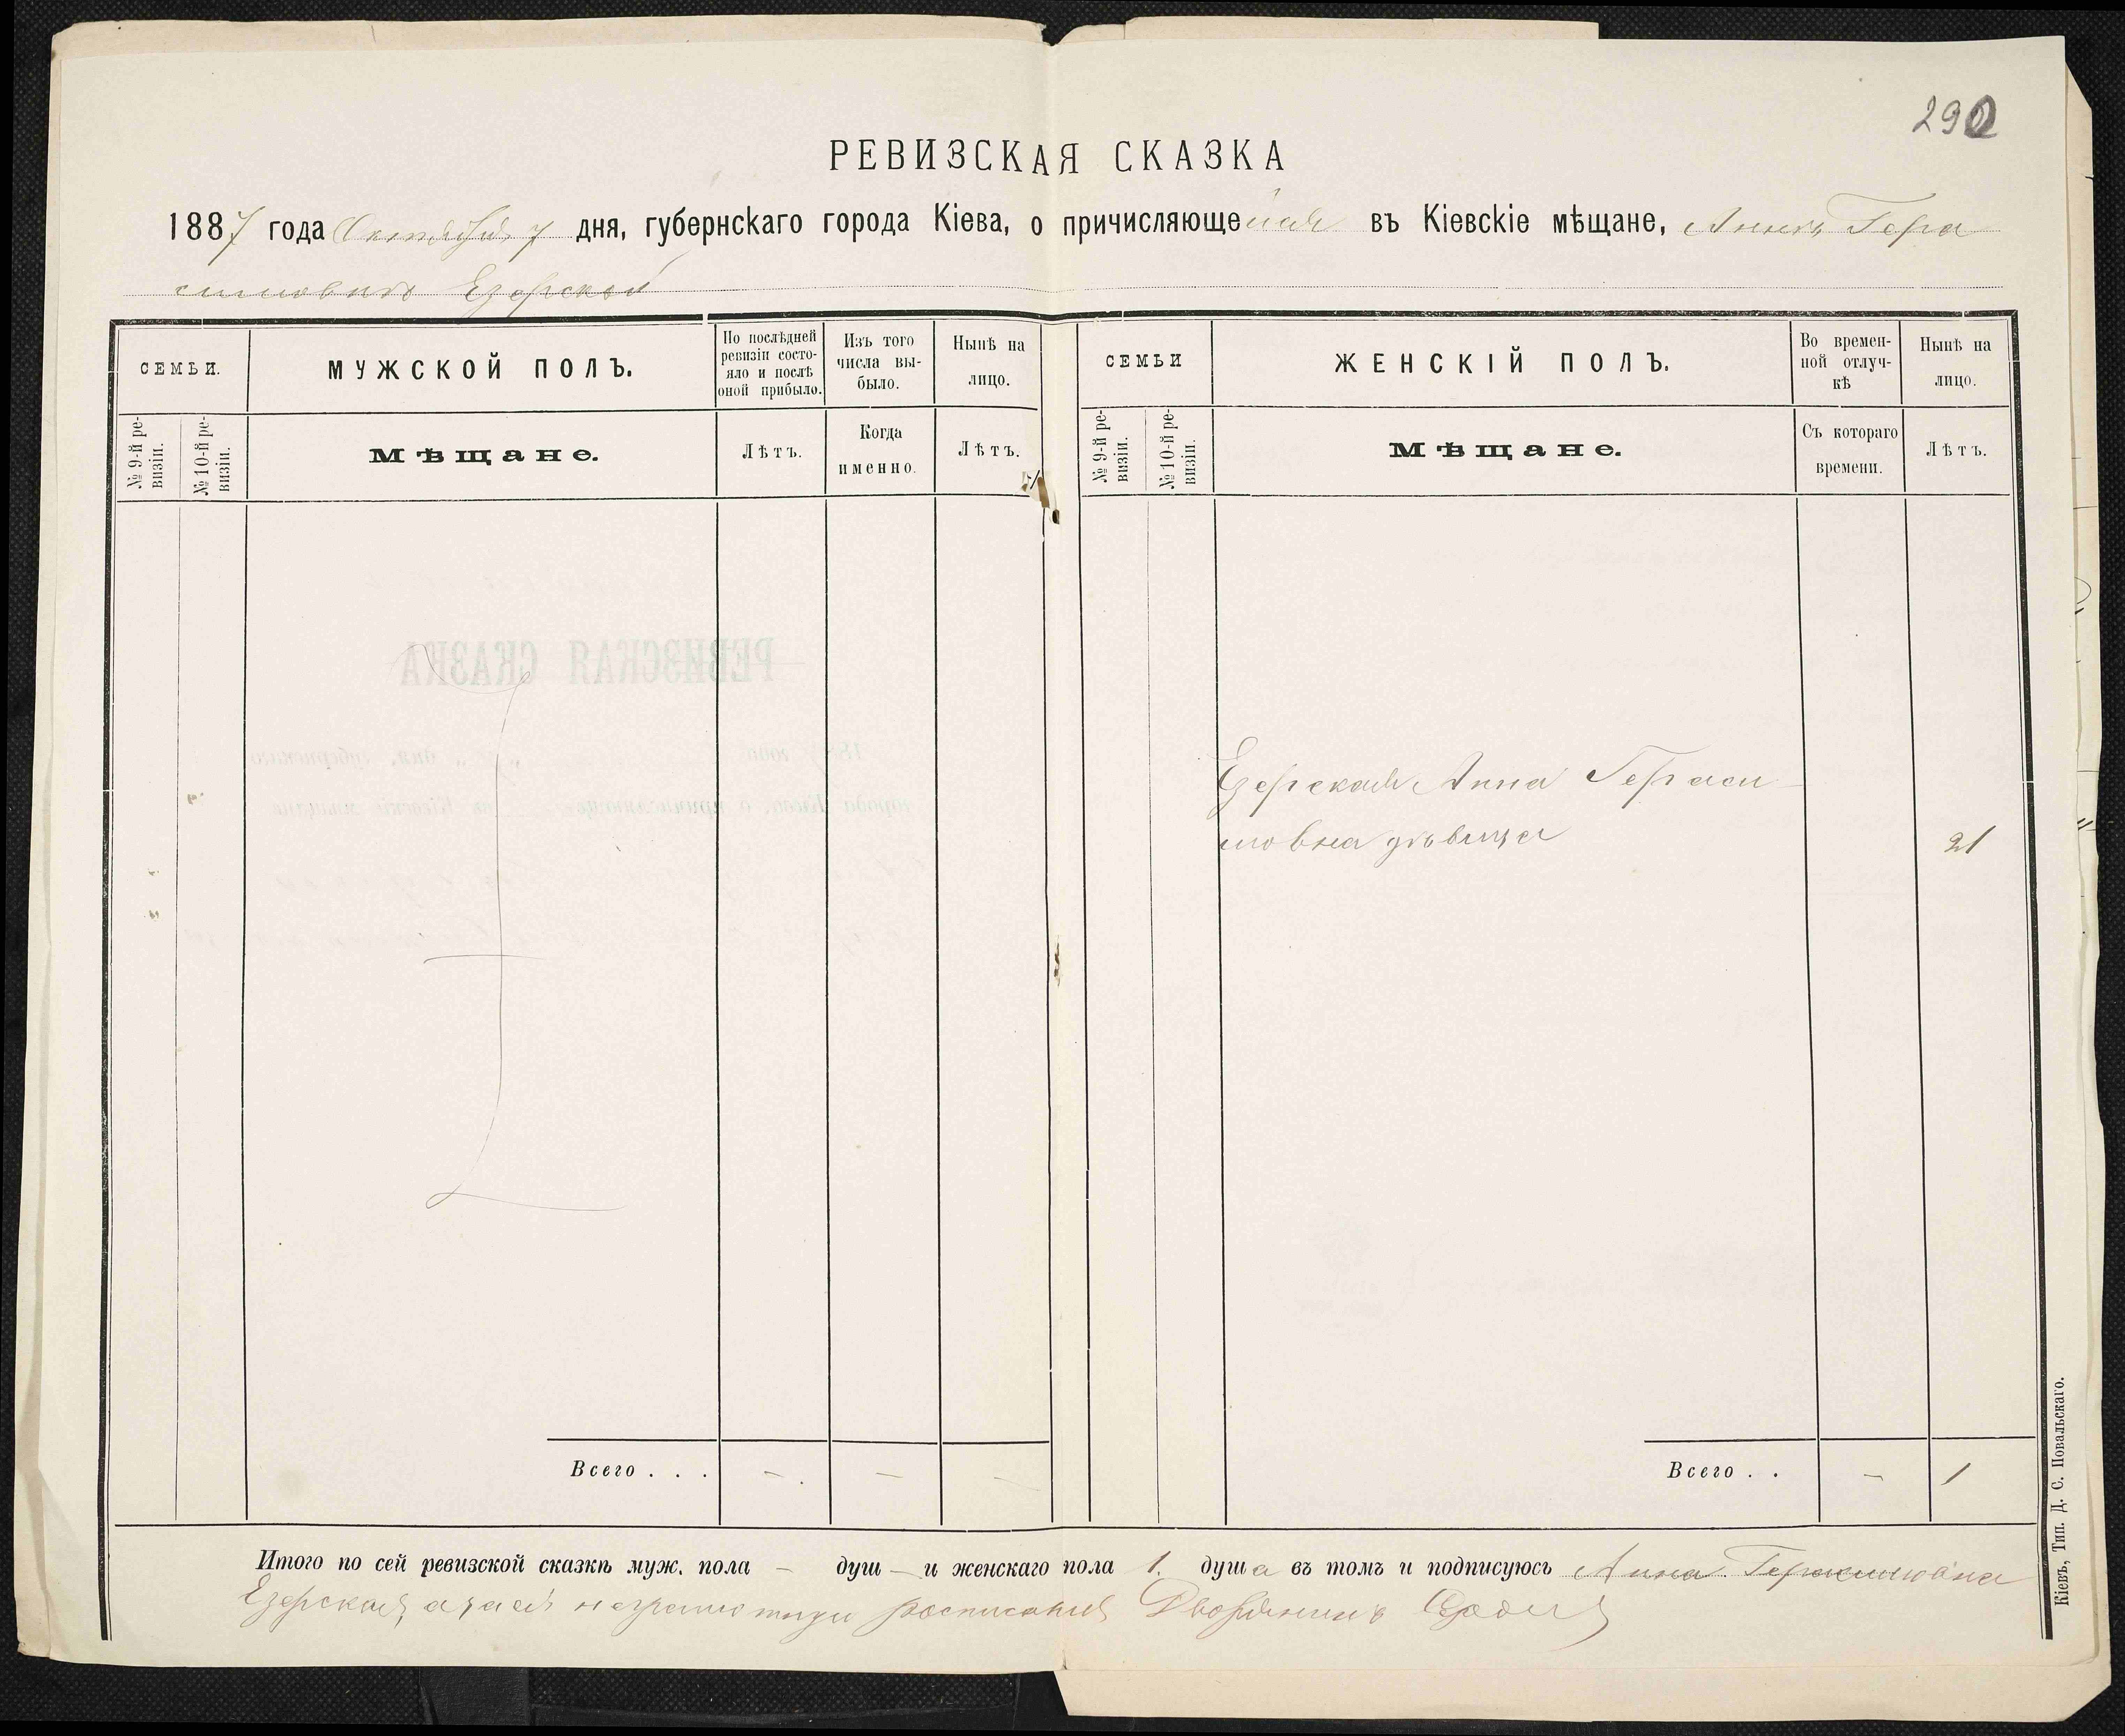 290
РЕВИЗСКАЯ СКАЗКА
1887 года Октября 7 дня, губернскаго города Кіева, о причисляющейся въ Кіевскіе мѣщане, Аннѣ Гера
симовнѣ Езерской
СЕМЬИ.
МУЖСКОЙ ПОЛЪ.
По послѣдней
ревизіи состо-
яло и послѣ
оной прибыло.
Изъ того
числа вы-
было.
Нынѣ на
лицо.
СЕМЬИ
ЖЕНСКІЙ ПОЛЪ.
Во времен-
ной отлуч-
кѣ
Нынѣ на
лицо.
№ 9-й ре-
визіи.
№ 10-й ре-
визіи.
Мѣщане.
Лѣтъ.
Когда
именно.
Лѣтъ.
№ 9-й ре-
визіи.
№ 10-й ре-
визіи.
Мѣщане.
Съ котораго
времени.
Лѣтъ.
Езерская Анна Гераси
мовна дѣвица
21
Всего . . .
-
-
-
Всего . .
-
1
Итого по сей ревизской сказкѣ муж. пола - душ - и женскаго пола 1. душа въ томъ и подписуюсь Анна Герасимовна
Езерская, а за ея неграмотную росписался Дворянинъ
Кіевъ, Тип. Д. С. Повальскаго.